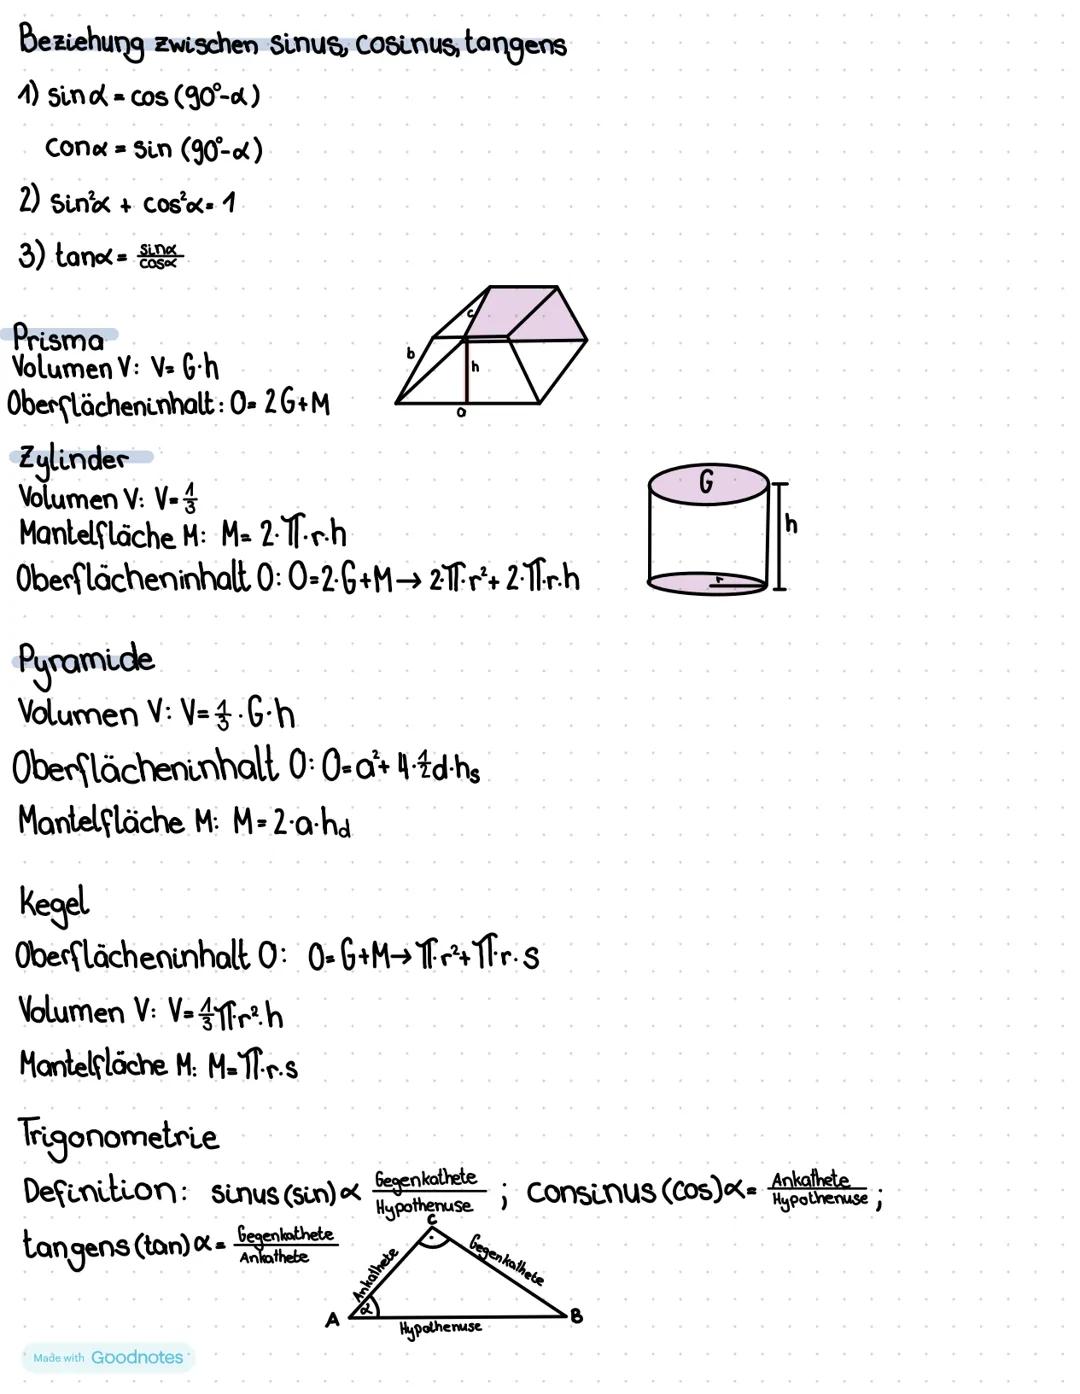 Beziehung zwischen sinus, cosinus, tangens
1) sin α = cos (90°-α)
conα = sin (90°-α)
2) sin²α + cos²α = 1
3) tanα = sinα/cosα
Prisma
Volumen V: V = G·h
Oberflächeninhalt: O = 2G+M
c
b
h
a
Zylinder
Volumen V: V = 1/3
Mantelfläche M: M = 2·π·r·h
Oberflächeninhalt O: O=2·G+M → 2·π·r²+ 2·π·r·h
G
h
r
Pyramide
Volumen V: V = 1/3 · G·h
Oberflächeninhalt O: O = a²+ 4·1/2d·hs
Mantelfläche M: M = 2·a·hd
Kegel
Oberflächeninhalt O: O = G+M → π·r²+π·r·s
Volumen V: V = 1/3π·r²·h
Mantelfläche M: M = π·r·s
Trigonometrie
Definition: sinus (sin) α Gegenkathete/Hypothenuse ; Consinus (cos) α = Ankathete/Hypothenuse ;
tangens (tan) α = Gegenkathete/Ankathete
C
Ankathete
Gegenkathete
α
A
B
Hypothenuse
Made with Goodnotes